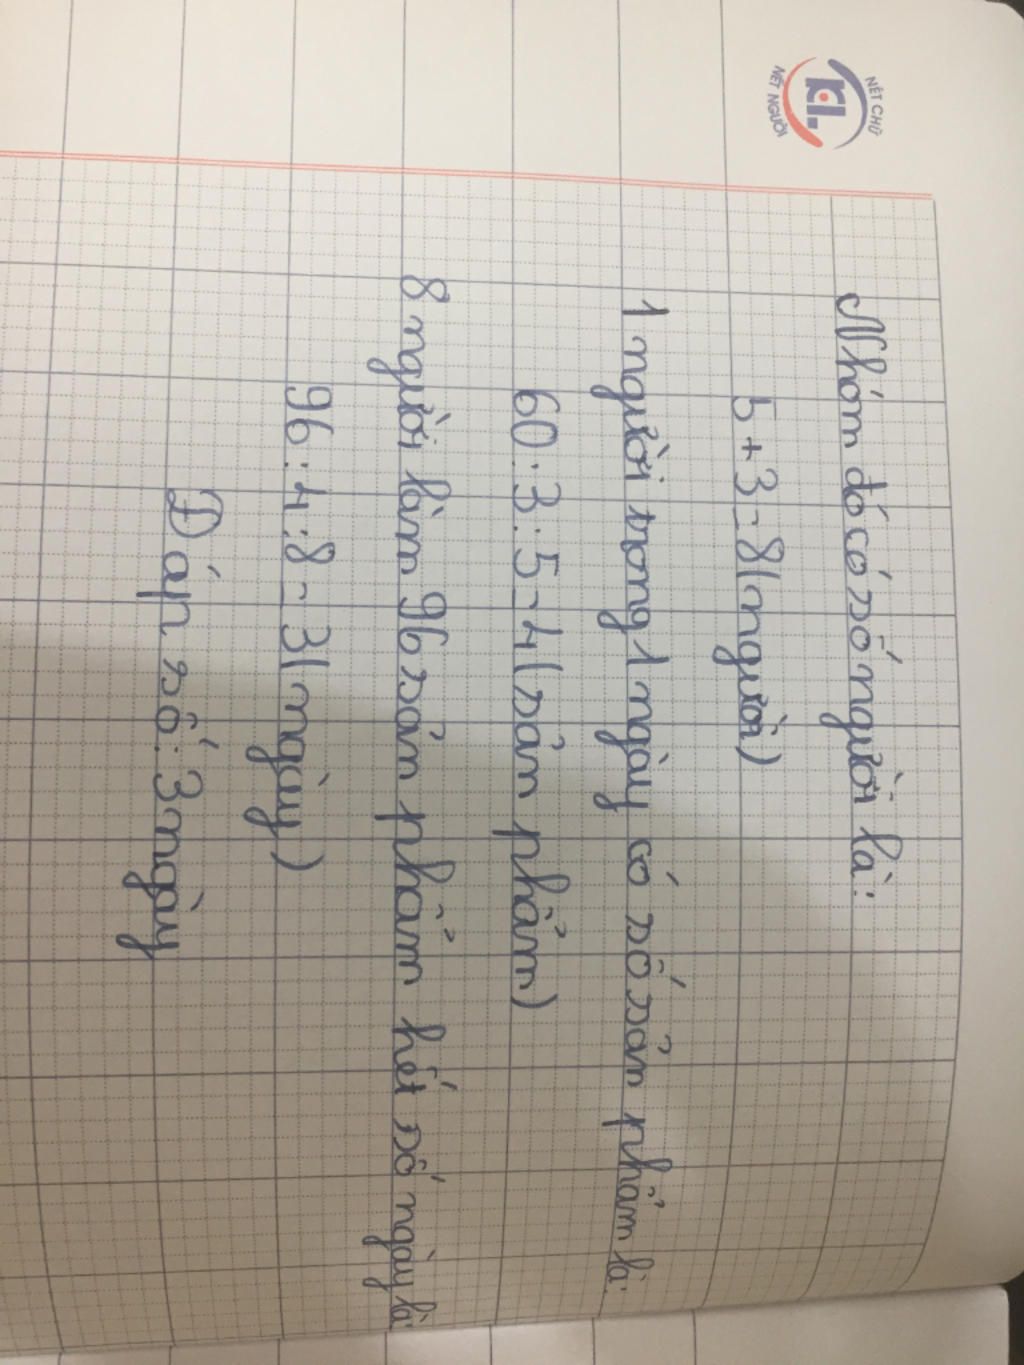 NÉT CHỮ
KL.
NẾT NGƯỜI
Nhóm đó có số người là:
5 + 3 = 8 (người)
1 người trong 1 ngày có số sản phẩm là:
60 : 3 : 5 = 4 (sản phẩm)
8 người làm 96 sản phẩm hết số ngày là:
96 : 4 : 8 = 3 (ngày)
Đáp số: 3 ngày